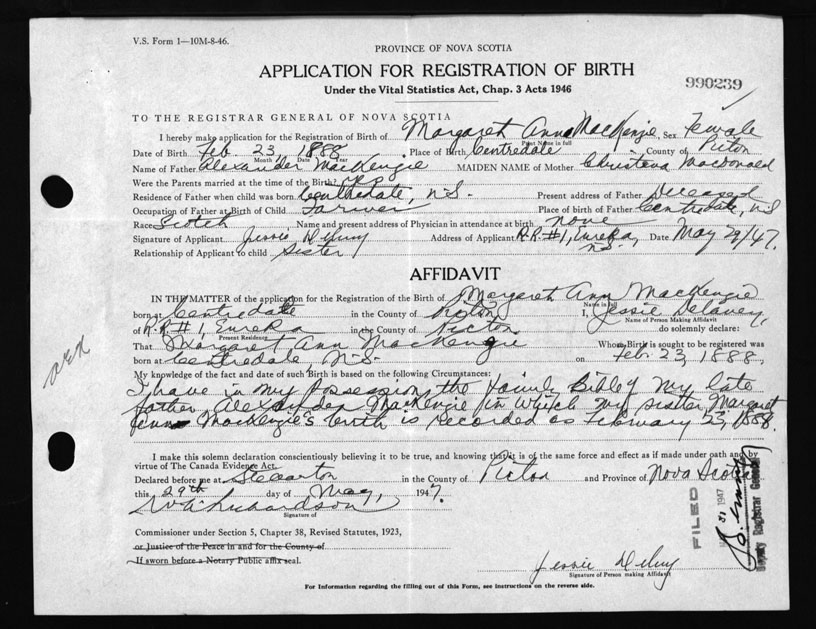 V.S. Form 1—10M-8-46.
PROVINCE OF NOVA SCOTIA
APPLICATION FOR REGISTRATION OF BIRTH
990239
Under the Vital Statistics Act, Chap. 3 Acts 1946
TO THE REGISTRAR GENERAL OF NOVA SCOTIA
I hereby make application for the Registration of Birth of Margaret Ann MacKenzie, Sex Female
Print Name in full
Date of Birth Feb 23 1888 Place of Birth Centredale County of Picton
Month Date Year
Name of Father Alexander MacKenzie MAIDEN NAME of Mother Christena MacDonald
Were the Parents married at the time of the Birth? yes
Residence of Father when child was born Centredale, N.S. Present address of Father Deceased
Occupation of Father at Birth of Child Farmer Place of birth of Father Centredale, N.S
Race Scotch Name and present address of Physician in attendance at birth none
Signature of Applicant Jessie Delaney Address of Applicant R.R. #1, Eureka, N.S. Date May 29/47.
Relationship of Applicant to child Sister
AFFIDAVIT
IN THE MATTER of the application for the Registration of the Birth of Margaret Ann MacKenzie
Name in full
born at Centredale in the County of Picton I, Jessie Delaney,
Name of Person Making Affidavit
of R.R. #1, Eureka in the County of Picton do solemnly declare:
Present Residence
That Margaret Ann MacKenzie Whose Birth is sought to be registered was
born at Centredale N.S. on Feb. 23, 1888,
My knowledge of the fact and date of such Birth is based on the following Circumstances:
I have in my possession the Family Bible of my late
father Alexander MacKenzie in which my sister Margaret
Ann MacKenzie's birth is recorded as February 23, 1888.
I make this solemn declaration conscientiously believing it to be true, and knowing that it is of the same force and effect as if made under oath and by
virtue of The Canada Evidence Act.
Declared before me at Stellarton in the County of Picton and Province of Nova Scotia
this 29th day of May, 1947.
W A Richardson
Signature of
Commissioner under Section 5, Chapter 38, Revised Statutes, 1923,
or Justice of the Peace in and for the County of
If sworn before a Notary Public affix seal.
FILED
31 1947
Deputy Registrar General
Jessie Delaney
Signature of Person making Affidavit
For Information regarding the filling out of this Form, see instructions on the reverse side.